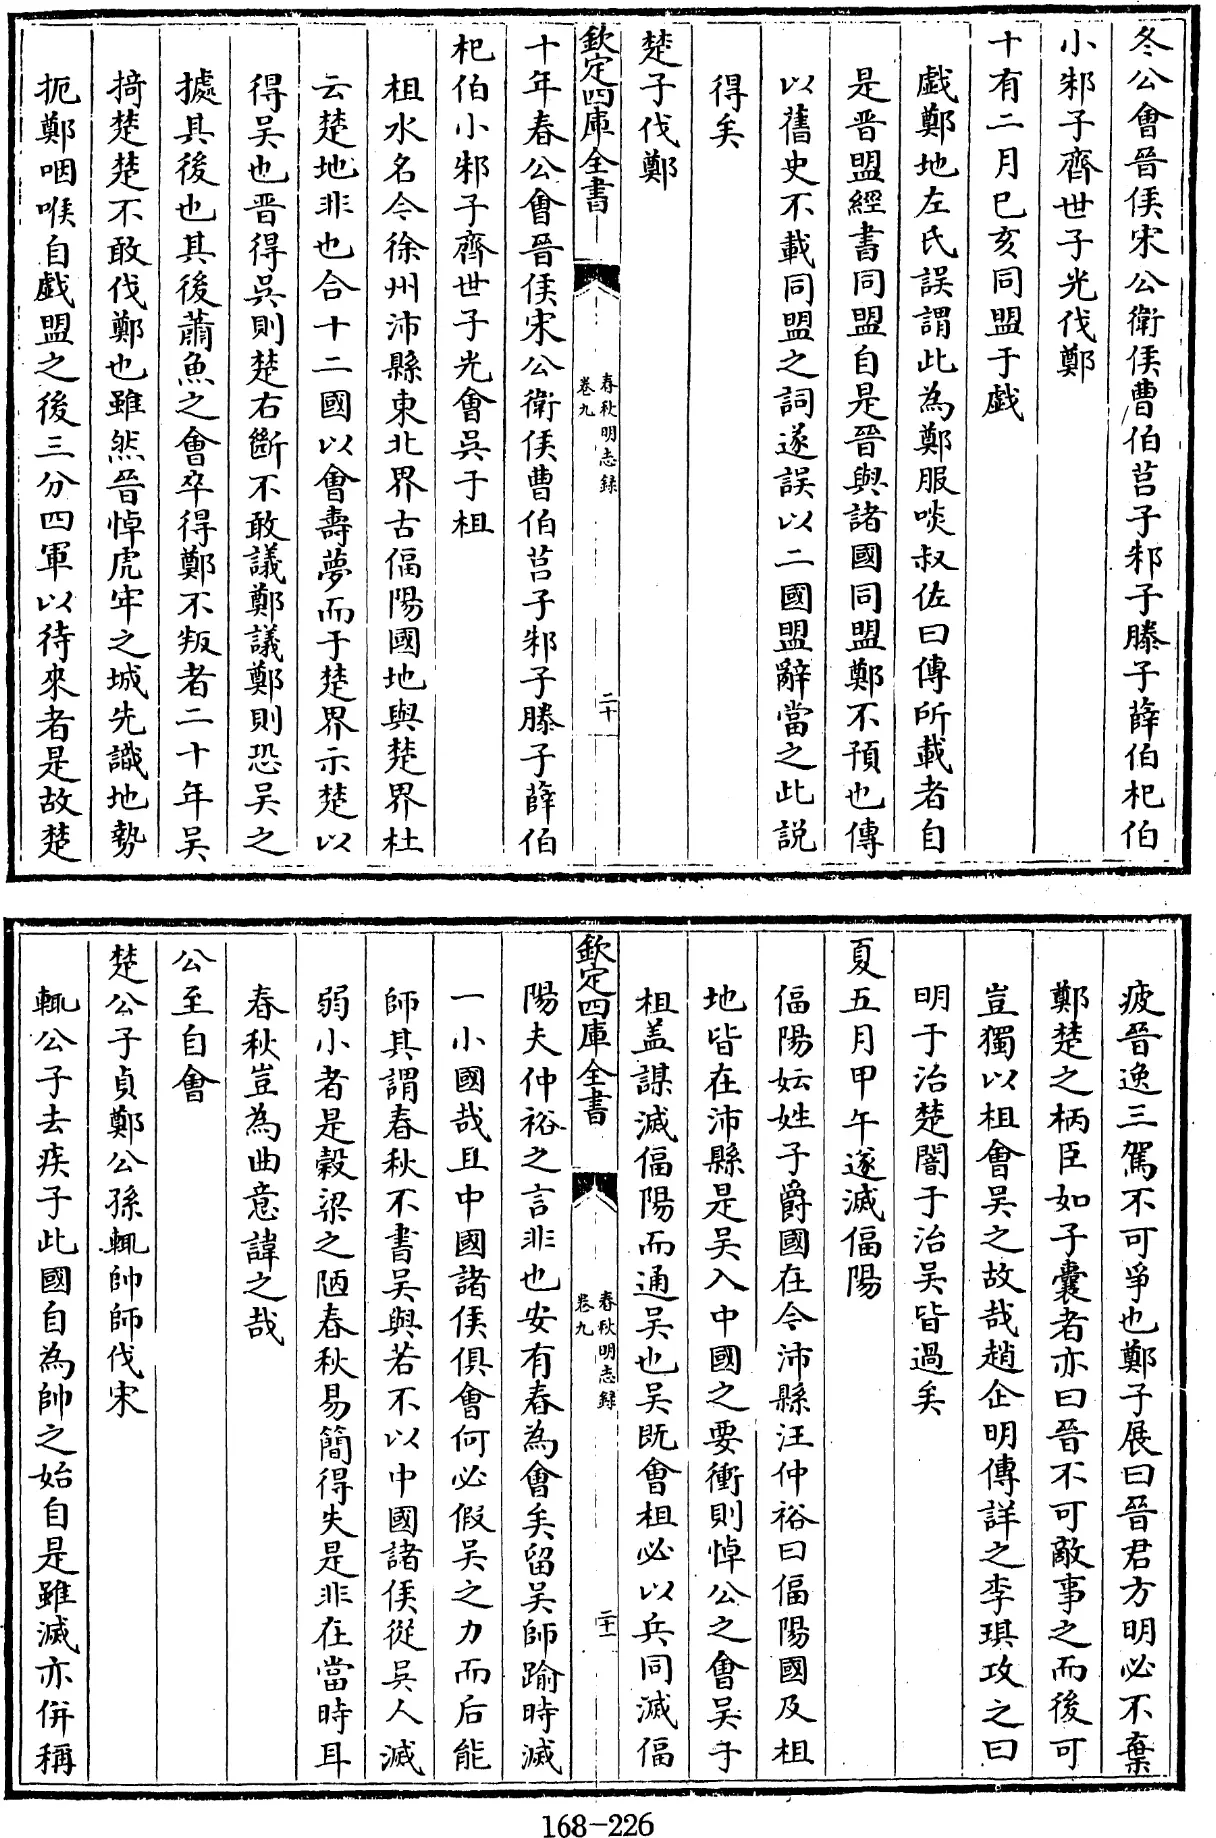 冬公會晉侯宋公衛侯曹伯莒子邾子滕子薛伯杞伯
小邾子齊世子光伐鄭
十有二月己亥同盟于戲
戲鄭地左氏誤謂此為鄭服啖叔佐曰傳所載者自
是晉盟經書同盟自是晉與諸國同盟鄭不預也傳
以舊史不載同盟之詞遂誤以二國盟辭當之此説
得矣
楚子伐鄭
欽定四庫全書
春秋明志録
卷九
二十
十年春公會晉侯宋公衛侯曹伯莒子邾子滕子薛伯
杞伯小邾子齊世子光會吳于柤
柤水名今徐州沛縣東北界古偪陽國地與楚界杜
云楚地非也合十二國以會壽夢而于楚界示楚以
得吴也晋得吳則楚右斷不敢議鄭議鄭則恐吴之
據其後也其後蕭魚之會卒得鄭不叛者二十年吴
掎楚楚不敢伐鄭也雖然晉悼虎牢之城先識地勢
扼鄭咽喉自戲盟之後三分四軍以待來者是故楚
疲晉逸三駕不可爭也鄭子展曰晉君方明必不棄
鄭楚之柄臣如子囊者亦曰晉不可敵事之而後可
豈獨以柤會吴之故哉趙企明傳詳之李琪攻之曰
明于治楚闇于治吴皆過矣
夏五月甲午遂滅偪陽
偪陽妘姓子爵國在今沛縣汪仲裕曰偪陽國及柤
地皆在沛縣是吴入中國之要衝則悼公之會吴于
柤盖謀滅偪陽而通吴也吴既會柤必以兵同滅偪
欽定四庫全書
春秋明志録
卷九
二十一
陽夫仲裕之言非也安有春為會矣留吴師踰時滅
一小國哉且中國諸侯俱會何必假吴之力而后能
師其謂春秋不書吴與若不以中國諸侯從吳人滅
弱小者是穀梁之陋春秋易簡得失是非在當時耳
春秋豈為曲意諱之哉
公至自會
楚公子貞鄭公孫輒帥師伐宋
輒公子去疾子此國自為帥之始自是雖滅亦併稱
168-226